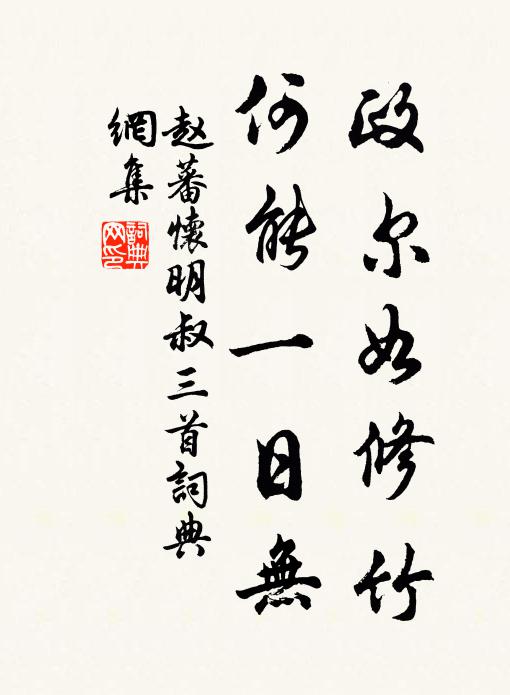 政尔如修竹
何能一日無
赵蕃懷明叔三首詞典
網集
詞典网印